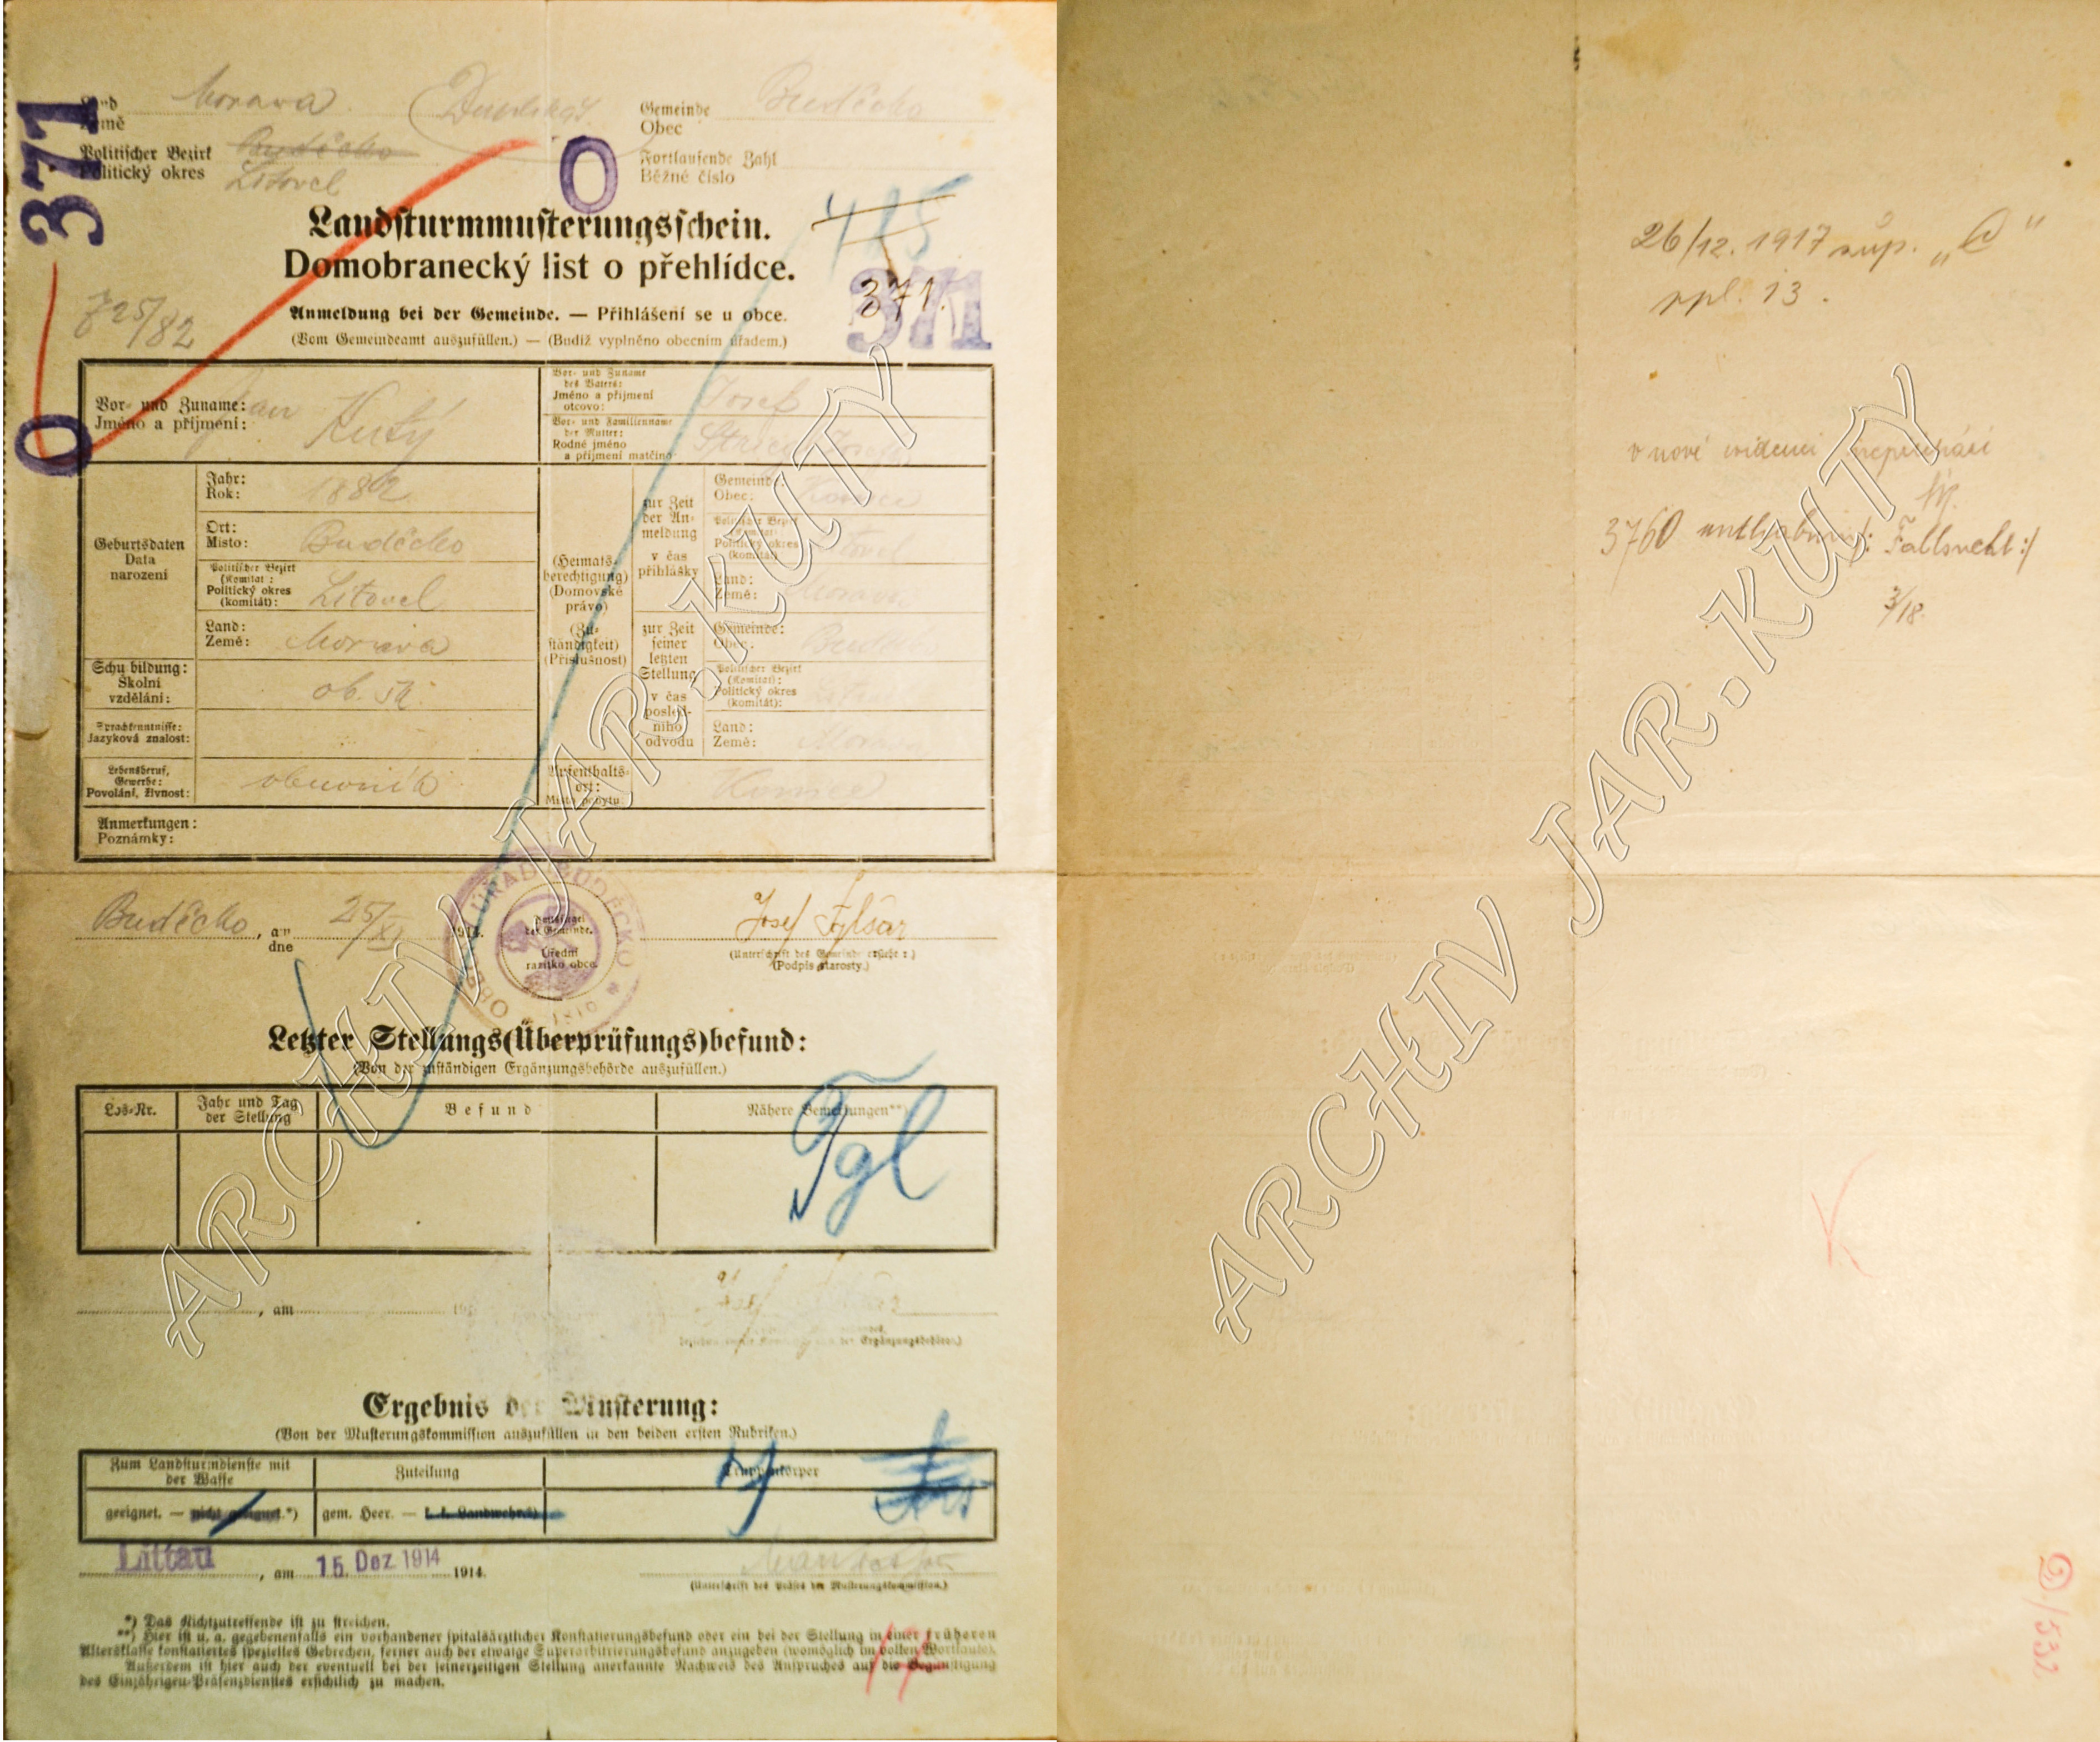 371
Land
Země
Morava
Gemeinde
Obec
Buděcko
Politischer Bezirk
Politický okres
Buděcko
Litovel
Fortlaufende Zahl
Běžné číslo
O
Landsturmmusterungsschein.
Domobranecký list o přehlídce.
415
371.
371
25/82
Anmeldung bei der Gemeinde. — Přihlášení se u obce.
(Vom Gemeindeamt auszufüllen.) — (Budiž vyplněno obecním úřadem.)
O
Vor- und Zuname:
Jméno a příjmení:
Jan Kutý
Vor- und Zuname
des Vaters:
Jméno a příjmení
otcovo:
Josef
Vor- und Familienname
der Mutter:
Rodné jméno
a příjmení matčino
Geburtsdaten
Data
narození
Jahr:
Rok:
1882
Ort:
Místo:
Buděcko
Politischer Bezirk
(Komitat):
Politický okres
(komitát):
Litovel
Land:
Země:
Morava
(Heimats-
berechtigung)
(Domovské
právo)
(Zu-
ständigkeit)
(Příslušnost)
zur Zeit
der An-
meldung
v čas
přihlášky
Gemeinde:
Obec:
Konice
Politischer Bezirk
(Komitat):
Politický okres
(komitát):
Litovel
Land:
Země:
Morava
zur Zeit
seiner
letzten
Stellung
v čas
posled-
ního
odvodu
Gemeinde:
Obec:
Buděcko
Politischer Bezirk
(Komitat):
Politický okres
(komitát):
Land:
Země:
Morava
Schulbildung:
Školní
vzdělání:
ob. šk.
Sprachkenntnisse:
Jazyková znalost:
Lebensberuf,
Gewerbe:
Povolání, živnost:
obuvník
Aufenthalts-
ort:
Místo pobytu:
Konice
Anmerkungen:
Poznámky:
Buděcko, am
dne
25/XI 1914.
OBECNÍ ÚŘAD BUDĚCKO
Amtssiegel
der Gemeinde.
Úřední
razítko obce.
Josef Fylšar
(Unterschrift des Gemeindevorstehers:)
(Podpis starosty.)
Letzter Stellungs(Überprüfungs)befund:
(Von der zuständigen Ergänzungsbehörde auszufüllen.)
Los-Nr.
Jahr und Tag
der Stellung
Befund
Nähere Bemerkungen**)
Tgl
, am 191
der Ergänzungsbehörde.)
Ergebnis der Musterung:
(Von der Musterungskommission auszufüllen in den beiden ersten Rubriken.)
Zum Landsturmdienste mit
der Waffe
Zuteilung
Truppenkörper
geeignet. — nicht geeignet.*)
gem. Heer. — k. k. Landwehr.*)
Littau, am 15. Dez 1914 1914.
(Unterschrift des Präses der Musterungskommission.)
*) Das Nichtzutreffende ist zu streichen.
**) Hier ist u. a. gegebenenfalls ein vorhandener spitalsärztlicher Konstatierungsbefund oder ein bei der Stellung in einer früheren
Altersklasse konstatiertes spezielles Gebrechen, ferner auch der etwaige Superarbitrierungsbefund anzugeben (womöglich im vollen Wortlaute).
Außerdem ist hier auch der eventuell bei der seinerzeitigen Stellung anerkannte Nachweis des Anspruches auf die Begünstigung
des Einjährigen-Präsenzdienstes ersichtlich zu machen.
14
ARCHIV JAR. KUTY
26/12. 1917 sup. „C"
spl. 13.
v nové evidenci nepřichází
3760
3/18.
D/532
ARCHIV JAR. KUTY